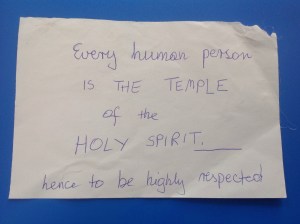 Every human person
IS THE TEMPLE
of the
HOLY SPIRIT.____
hence to be highly respected